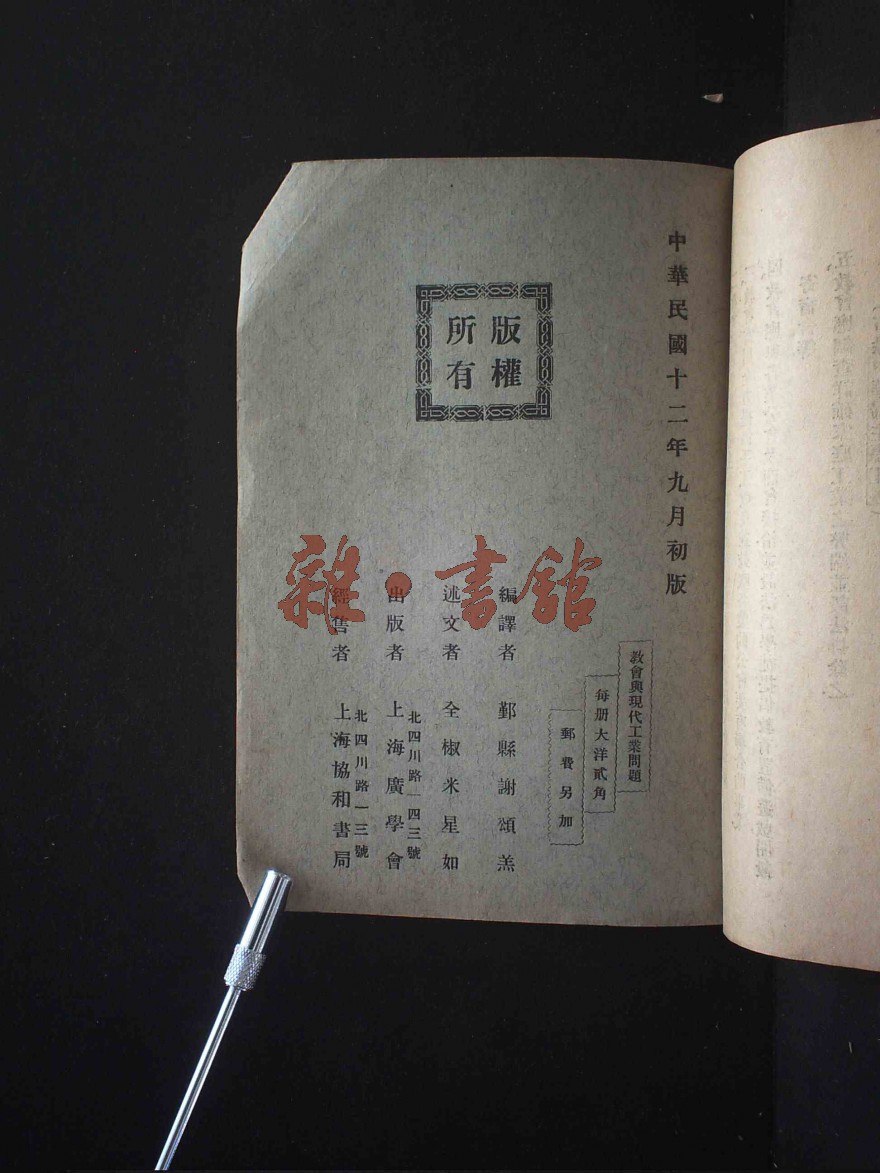 中華民國十二年九月初版
版權
所有
教會與現代工業問題
每册大洋貳角
郵費另加
編譯者 鄞縣謝頌羔
述文者 全椒米星如
出版者 上海廣學會
北四川路一四三號
經售者 上海協和書局
北四川路一三號
雜·書館